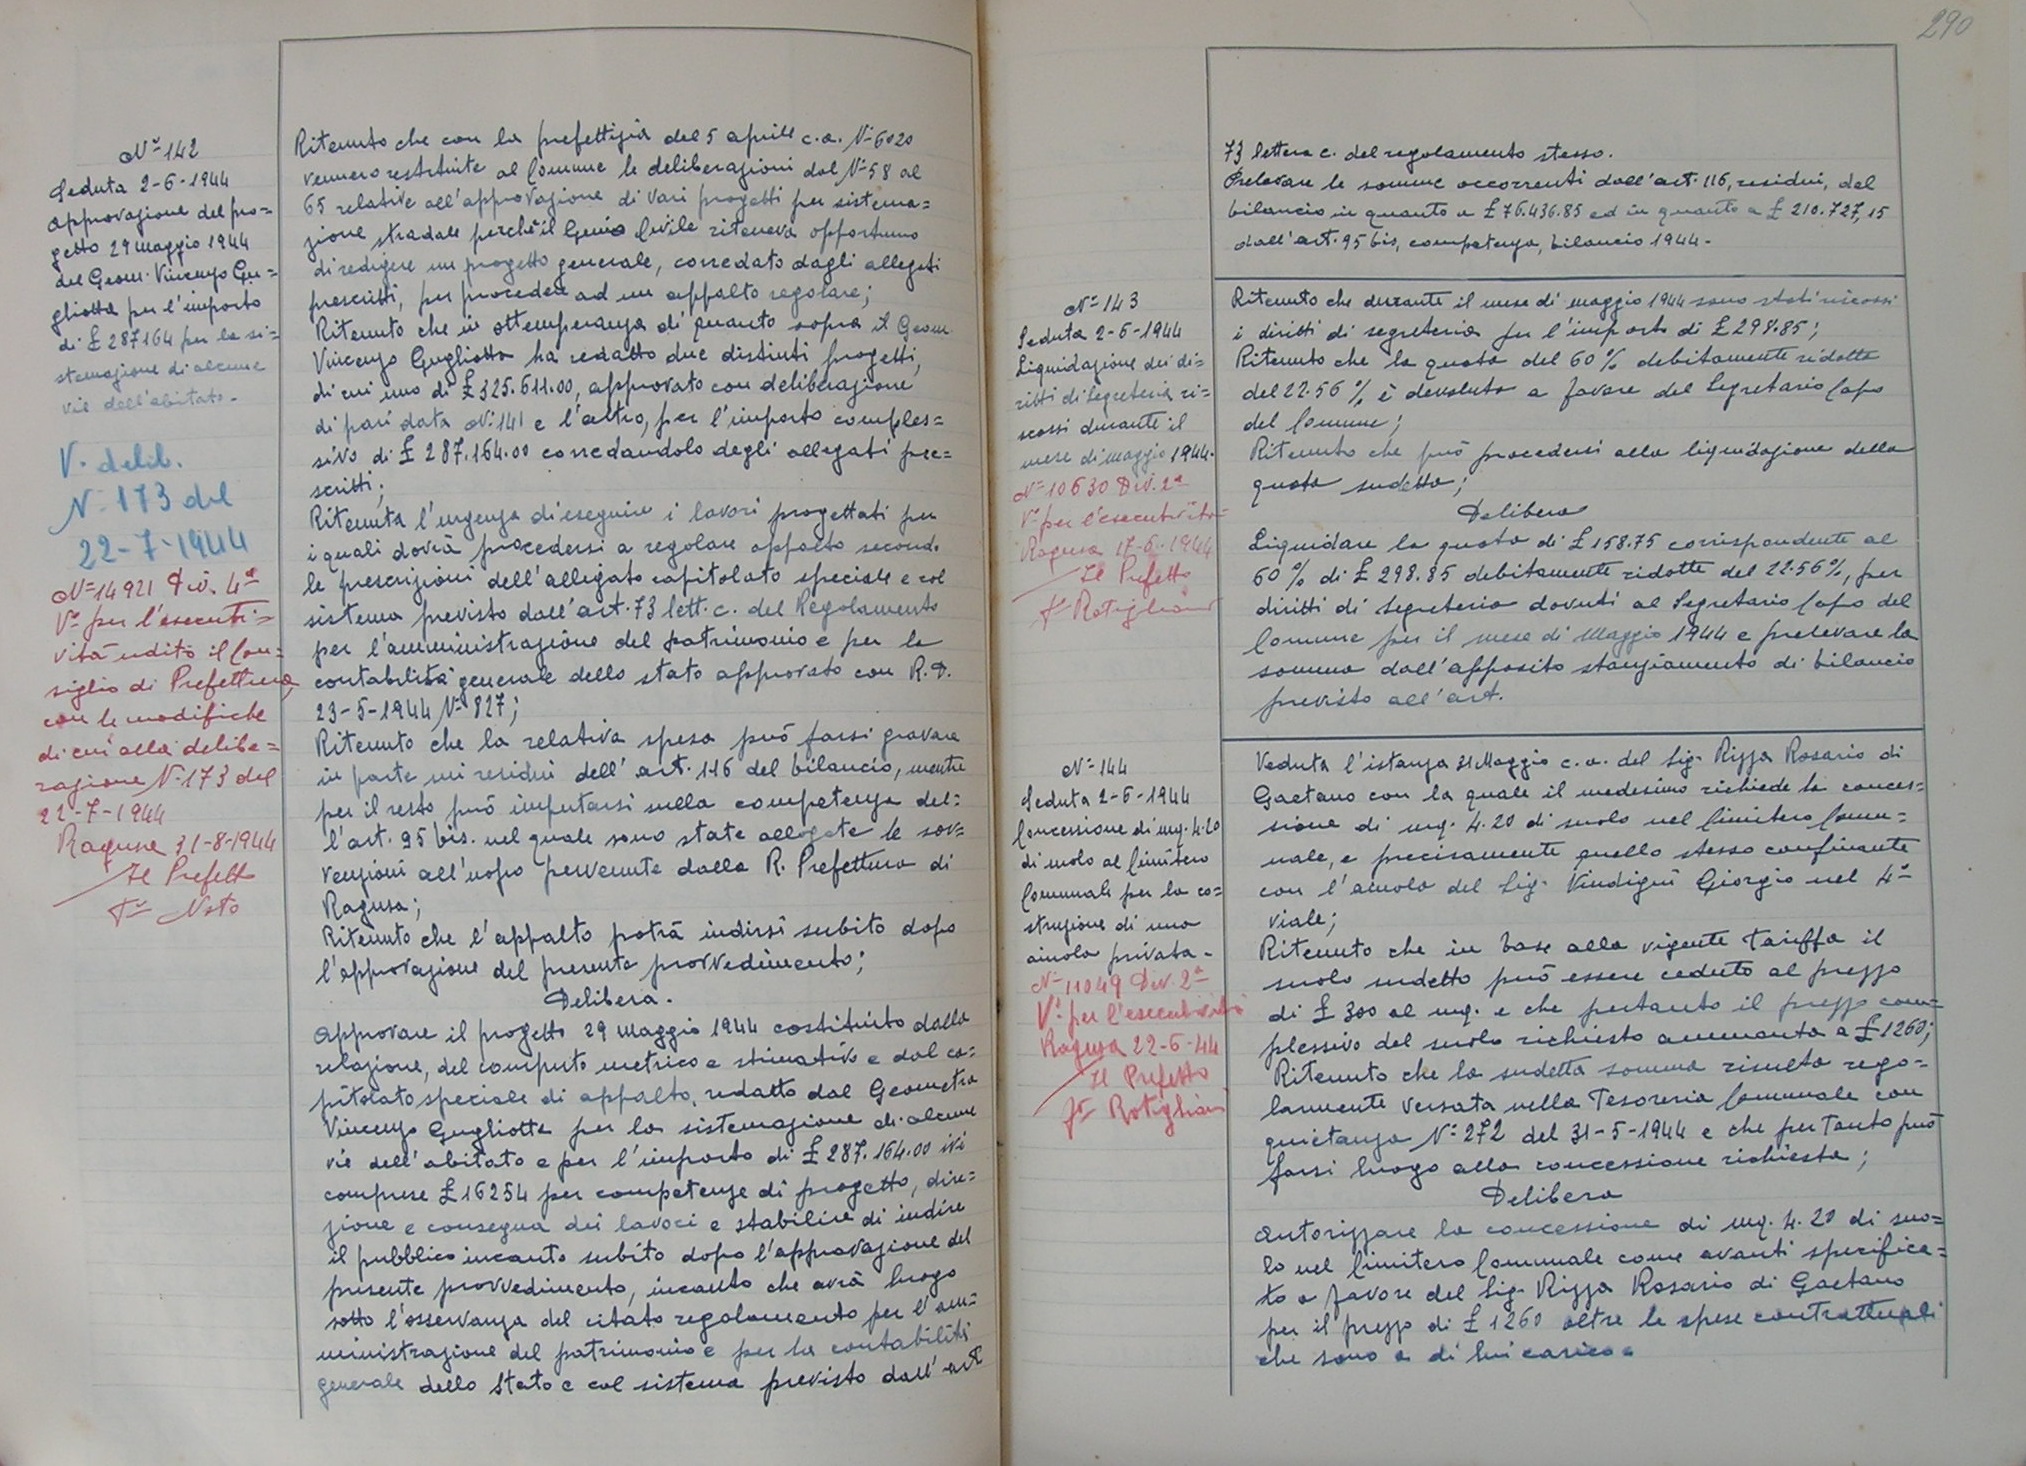 290
Nº 142
Seduta 2-6-1944
approvazione del pro=
getto 29 maggio 1944
del Geom. Vincenzo Gu=
gliotta per l'importo
di £ 287164 per la si=
stemazione di alcune
vie dell'abitato.
V. delib.
N. 173 del
22-7-1944
Nº 14921 Div. 4ª
Vº per l'esecuti=
vità udito il Con=
siglio di Prefettura
con le modifiche
di cui alla delibe=
razione N. 173 del
22-7-1944
Ragusa 31-8-1944
Il Prefetto
Fº Noto
Ritenuto che con la prefettizia del 5 aprile c.a. Nº 6020
vennero restituite al Comune le deliberazioni dal Nº 58 al
65 relative all'approvazione di vari progetti per sistema=
zione stradale perchè il Genio Civile riteneva opportuno
di redigere un progetto generale, corredato dagli allegati
prescritti, per procedere ad un appalto regolare;
Ritenuto che in ottemperanza di quanto sopra il Geom.
Vincenzo Gugliotta ha redatto due distinti progetti,
di cui uno di £ 325.611.00, approvato con deliberazione
di pari data Nº 141 e l'altro, per l'importo comples=
sivo di £ 287.164.00 corredandolo degli allegati pre=
scritti;
Ritenuta l'urgenza di eseguire i lavori progettati per
i quali dovrà procedersi a regolare appalto secondo
le prescrizioni dell'allegato capitolato speciale e col
sistema previsto dall'art. 73 lett. c. del Regolamento
per l'amministrazione del patrimonio e per la
contabilità generale dello stato approvato con R.D.
23-5-1944 Nº 827;
Ritenuto che la relativa spesa può farsi gravare
in parte sui residui dell'art. 116 del bilancio, mentre
per il resto può imputarsi sulla competenza del=
l'art. 95 bis. nel quale sono state allogate le sov=
venzioni all'uopo pervenute dalla R. Prefettura di
Ragusa;
Ritenuto che l'appalto potrà indirsi subito dopo
l'approvazione del presente provvedimento;
Delibera.
Approvare il progetto 29 maggio 1944 costituito dalla
relazione, del computo metrico e stimativo e dal ca=
pitolato speciale di appalto, redatto dal Geometra
Vincenzo Gugliotta per la sistemazione di alcune
vie dell'abitato e per l'importo di £ 287.164.00 ivi
comprese £ 16254 per competenze di progetto, dire=
zione e consegna dei lavori e stabilire di indire
il pubblico incanto subito dopo l'approvazione del
presente provvedimento, incanto che avrà luogo
sotto l'osservanza del citato regolamento per l'am=
ministrazione del patrimonio e per la contabilità
generale dello Stato e col sistema previsto dall'art
73 lettera c. del regolamento stesso.
Prelevare le somme occorrenti dall'art. 116, residui, del
bilancio in quanto a £ 76.436.85 ed in quanto a £ 210.727,15
dall'art. 95 bis, competenza, bilancio 1944.
Nº 143
Seduta 2-6-1944
Liquidazione dei di=
ritti di Segreteria ri=
scossi durante il
mese di maggio 1944.
Nº 10630 Div. 2ª
Vº per l'esecutività
Ragusa 17-6-1944
Il Prefetto
Fº Rotigliani
Ritenuto che durante il mese di maggio 1944 sono stati riscossi
i diritti di segreteria per l'importo di £ 298.85;
Ritenuto che la quota del 60% debitamente ridotta
del 22.56% è devoluta a favore del Segretario Capo
del Comune;
Ritenuto che può procedersi alla liquidazione della
quota sudetta;
Delibera
Liquidare la quota di £ 158.75 corrispondente al
60% di £ 298.85 debitamente ridotte del 22.56%, per
diritti di Segreteria dovuti al Segretario Capo del
Comune per il mese di Maggio 1944 e prelevare la
somma dall'apposito stanziamento di bilancio
previsto all'art.
Nº 144
Seduta 2-6-1944
Concessione di mq. 4.20
di suolo al Cimitero
Comunale per la co=
struzione di una
aiuola privata.
Nº 11049 Div. 2ª
Vº per l'esecutività
Ragusa 22-6-44
Il Prefetto
Fº Rotigliani
Veduta l'istanza 31 Maggio c.a. del Sig. Rizza Rosario di
Gaetano con la quale il medesimo richiede la conces=
sione di mq. 4.20 di suolo nel Cimitero Comu=
nale, e precisamente quello stesso confinante
con l'aiuola del Sig. Vindigni Giorgio nel 4º
viale;
Ritenuto che in base alla vigente tariffa il
suolo sudetto può essere ceduto al prezzo
di £ 300 al mq. e che pertanto il prezzo com=
plessivo del suolo richiesto ammonta a £ 1260;
Ritenuto che la sudetta somma risulta rego=
larmente versata nella Tesoreria Comunale con
quietanza Nº 272 del 31-5-1944 e che per tanto può
farsi luogo alla concessione richiesta;
Delibera
Autorizzare la concessione di mq. 4.20 di suo=
lo nel Cimitero Comunale come avanti specifica=
to a favore del Sig. Rizza Rosario di Gaetano
per il prezzo di £ 1260 oltre le spese contrattuali
che sono a di lui carico.